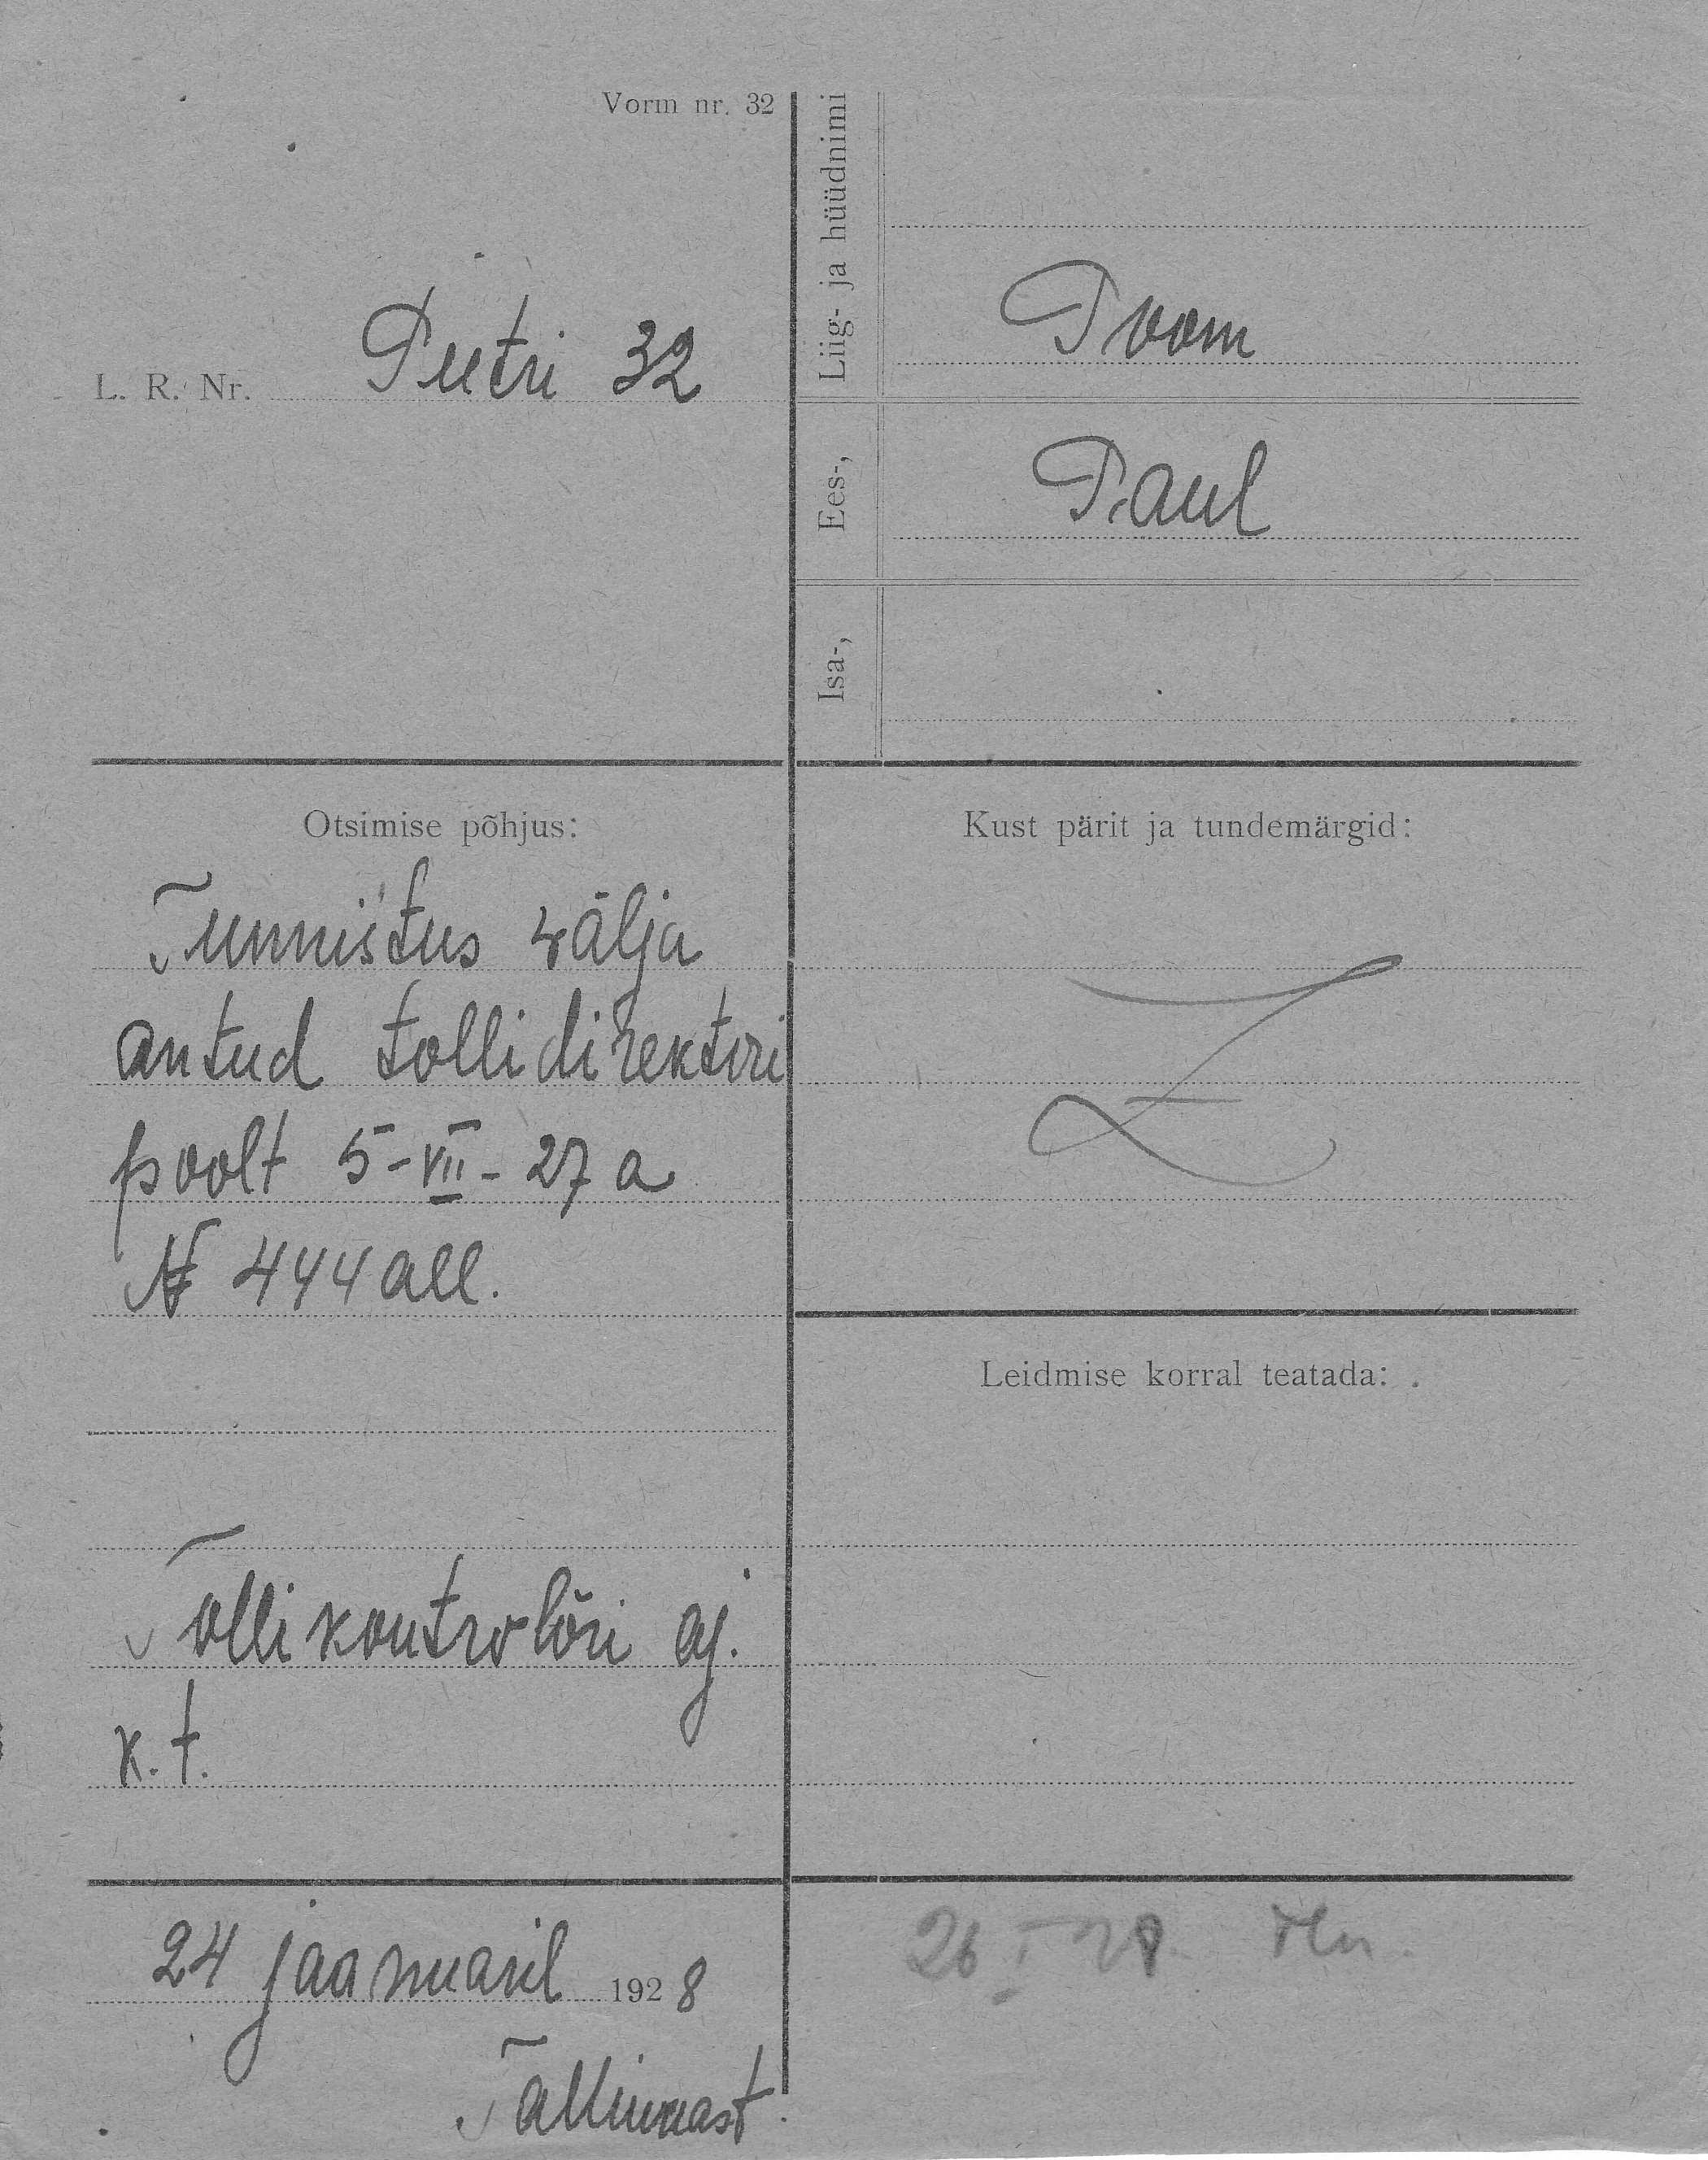 Vorm nr. 32
L. R. Nr. Peetri 32
Liig- ja hüüdnimi
Poom
Ees-,
Paul
Isa-,
Otsimise põhjus:
Tunnistus wälja
antud tollidirektori
poolt 5-VII-27 a
№ 444 all.
Tollikontrolöri aj.
k.t.
24 jaanuaril 1928
Tallinnast.
Kust pärit ja tundemärgid:
Leidmise korral teatada:
26 I 28